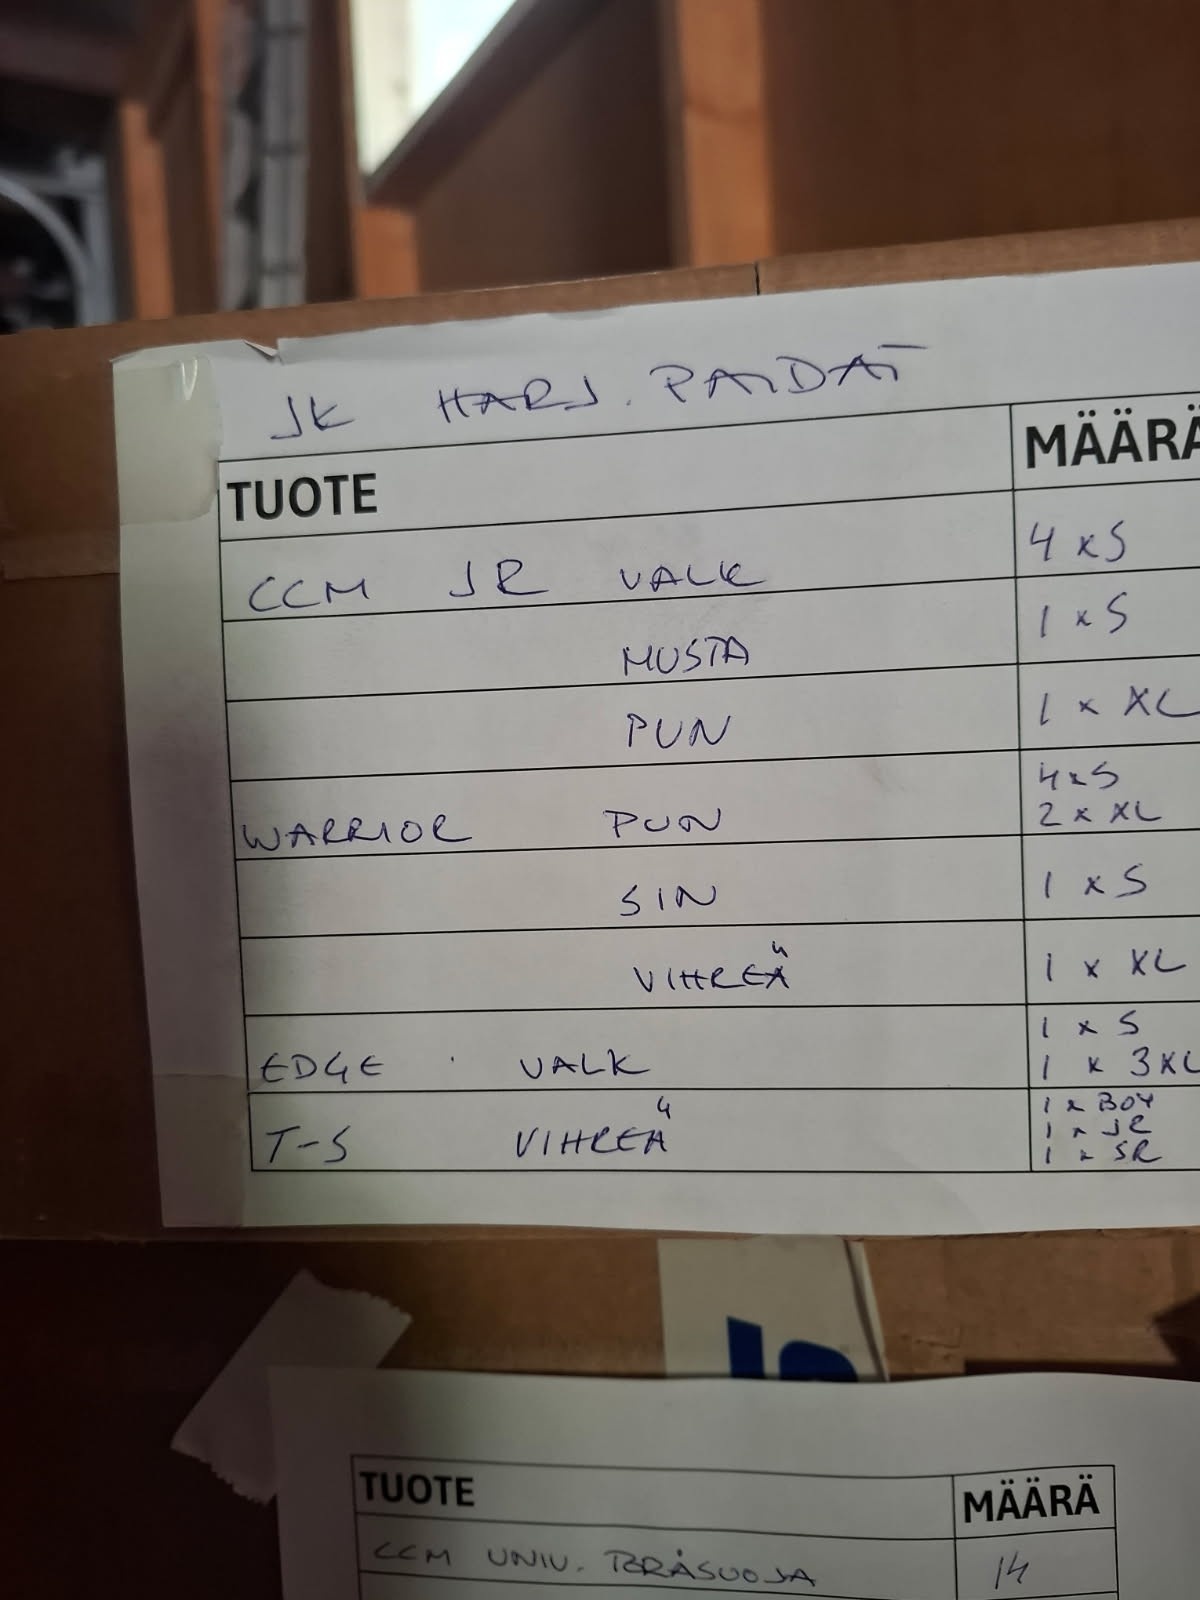 JK HARJ. PAIDAT
TUOTE MÄÄRÄ
CCM JR VALK 4 x S
MUSTA 1 x S
PUN 1 x XL
WARRIOR PUN 4 x S
2 x XL
SIN 1 x S
VIHREÄ 1 x XL
EDGE VALK 1 x S
1 x 3XL
T-S VIHREÄ 1 x BOY
1 x JR
1 x SR
TUOTE MÄÄRÄ
CCM UNIV. TERÄSUOJA 14